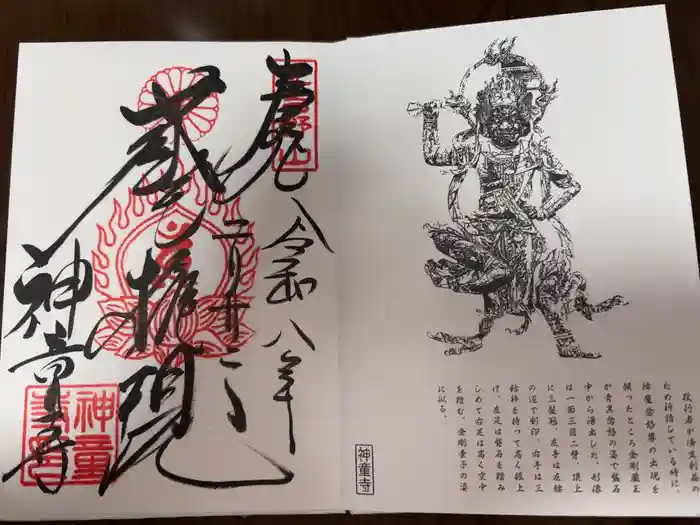 令和八年
蔵王権現
神童寺
役行者が済生利益の
ため祈請している時に、
降魔忿怒尊の出現を
願ったところ金剛蔵王
が青黒忿怒の姿で盤石
中から湧出した。形像
は一面三目二臂、頂上
に三髪冠、左手は左腰
の辺で剣印、右手は三
鈷杵を持って高く振上
げ、左足は盤石を踏み
しめて右足は高く空中
を踏む。金剛童子の姿
に似る。
神童寺